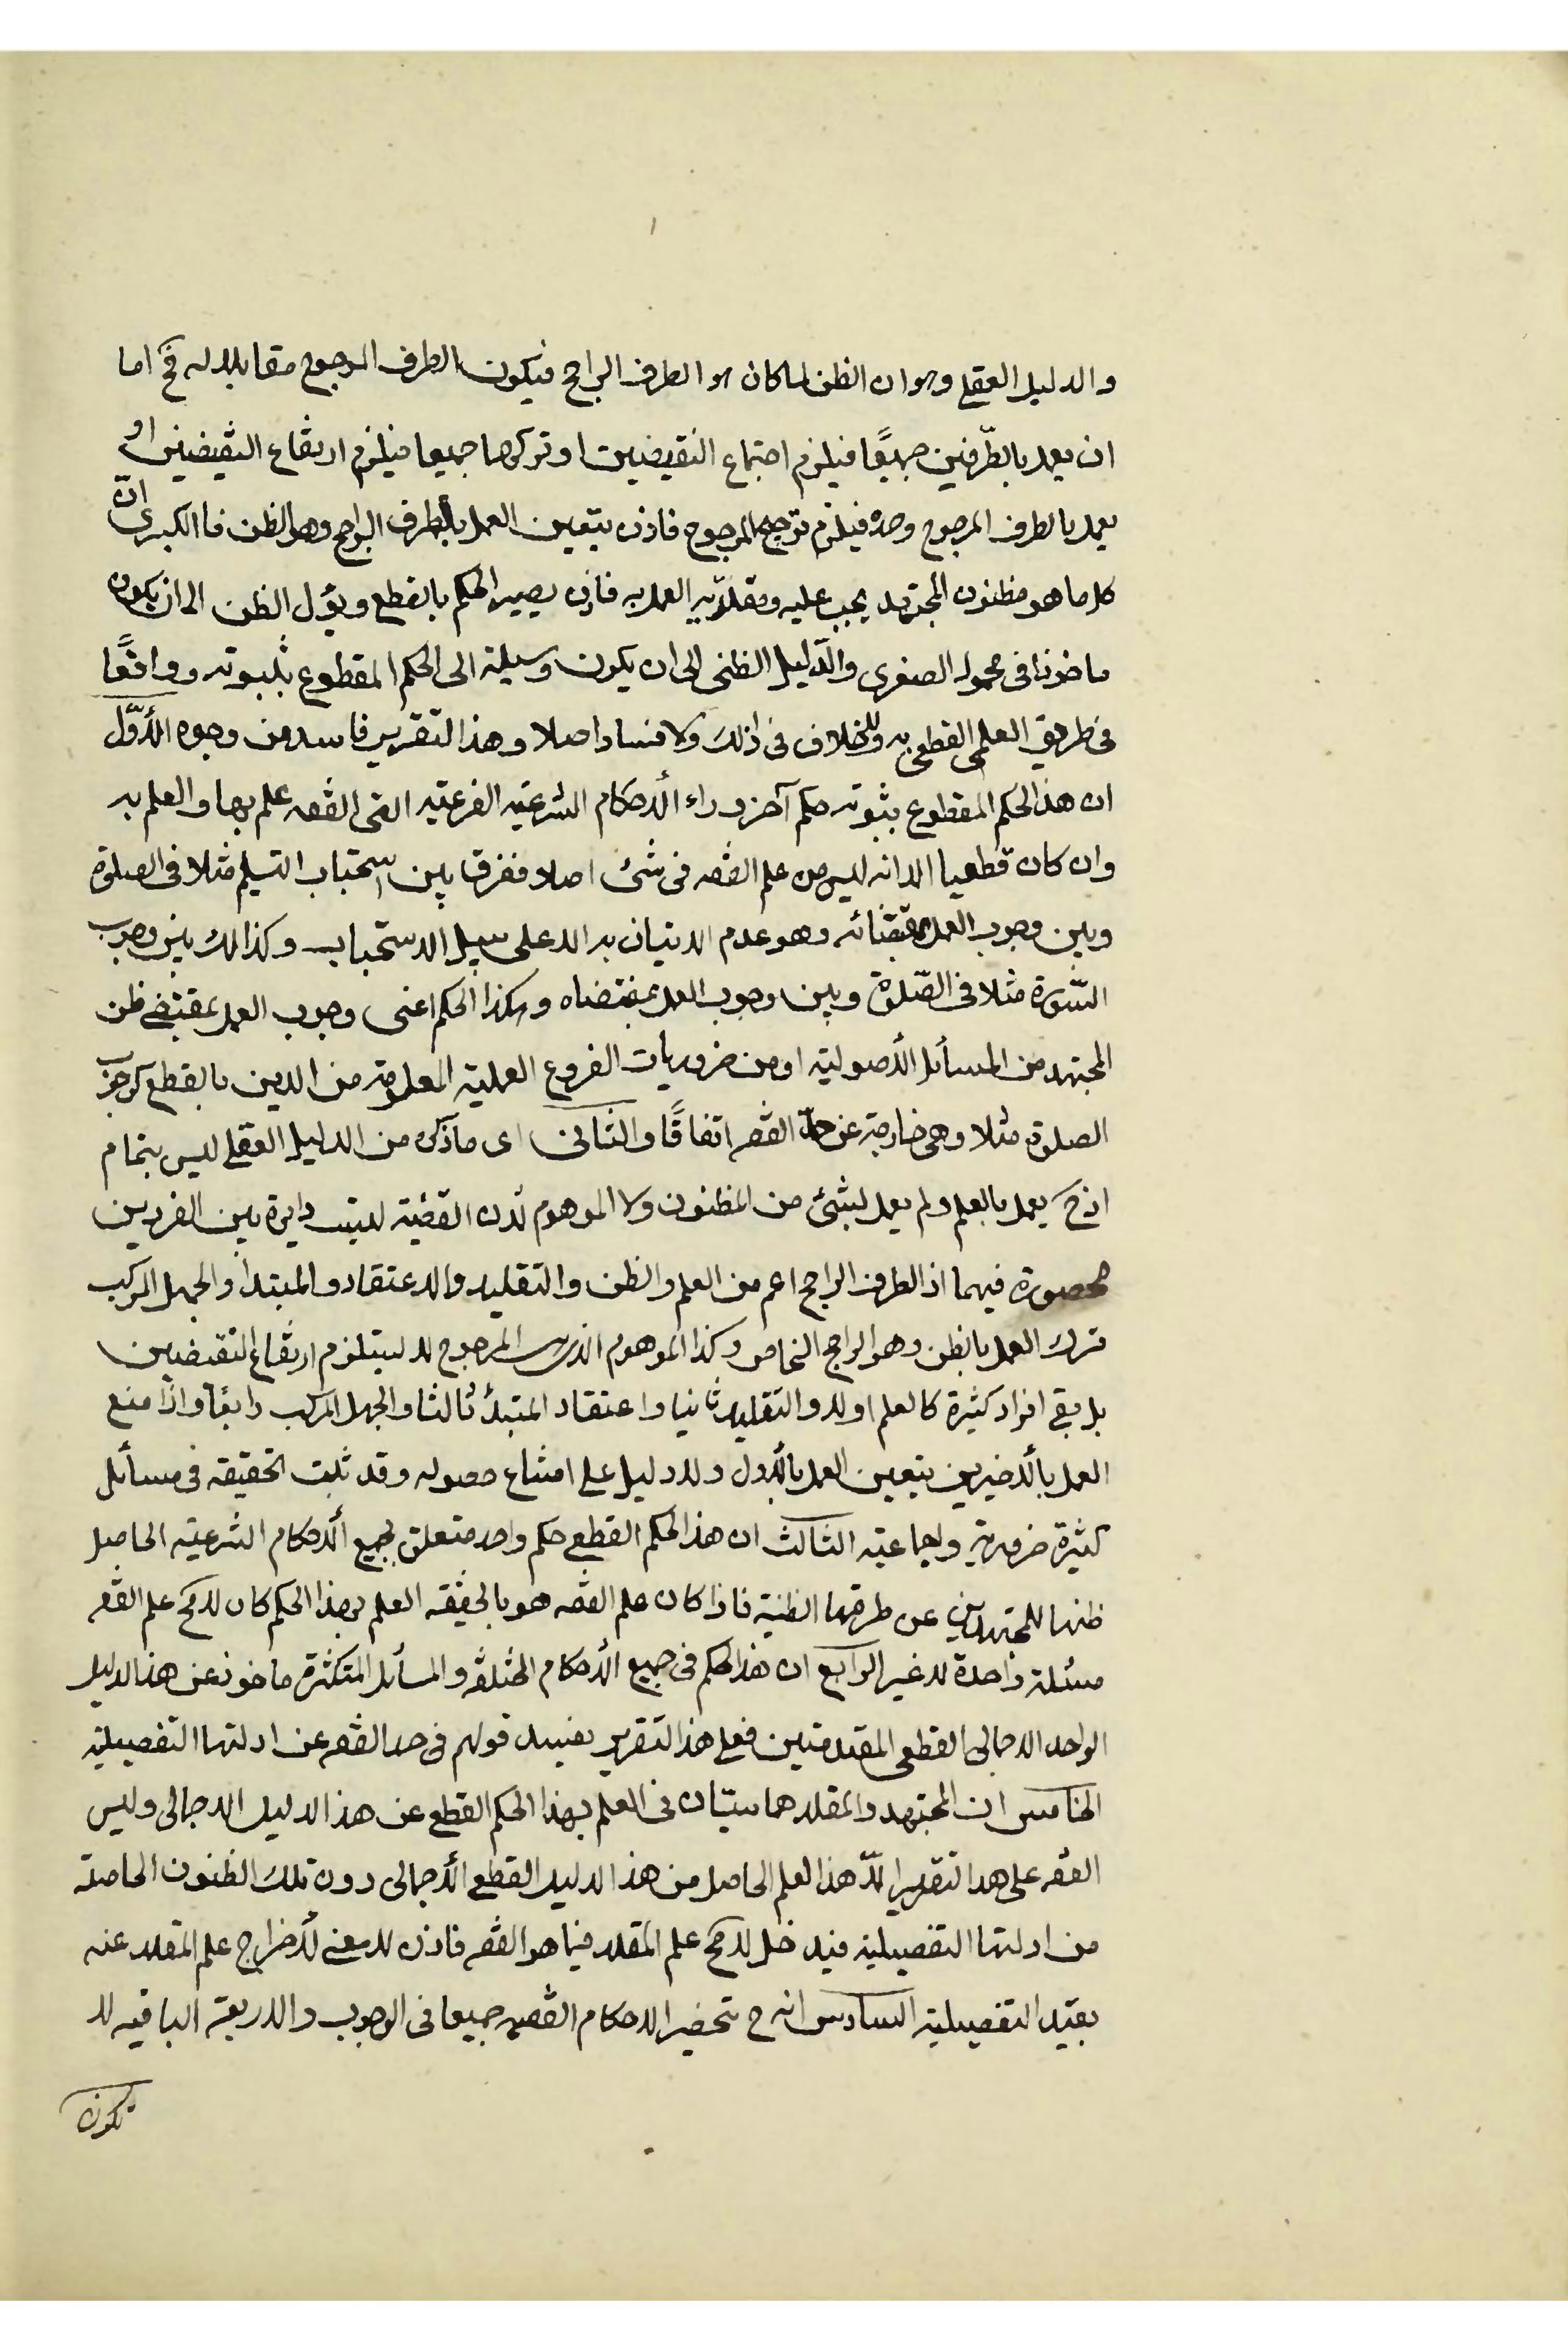 والدليل العقلي وهو ان الظن لما كان هو الطرف الراجح فيكون الطرف المرجوح مقابلا له فح اما
ان يعمل بالطّرفين جميعًا فيلزم اجتماع النقيضين او تركهما جميعا فيلزم ارتفاع النقيضين او
يعمل بالطرف المرجوح وحده فيلزم ترجيح المرجوح فاذن يتعين العمل بالطرف الراجح وهو الظن فاالكبرى انّ
كل ما هو مظنون المجتهد يجب عليه ومقلّديه العمل به فاذن يصير الحكم بالقطع ويؤل الظن الى ان يكون
ماخوذا فى محمول الصغرى والدّليل الظنى الى ان يكون وسيلة الى الحكم المقطوع بثبوته وواقعًا
فى طريق العلمى القطعى به ولا خلاف فى ذلك ولا فساد اصلا وهذا التقرير فاسد من وجوه الأوّل
ان هذ الحكم المقطوع بثبوته حكم آخر وراء الأحكام الشرعيه الفرعيّه التى الفقه علم بها والعلم به
وان كان قطعيا الا انه ليس من علم الفقه فى شئ اصلا ففرق بين استحباب التسليم مثلا فى الصلوة
وبين وجوب العمل بمقتضائه وهو عدم الاتيان به الا على سبيل الاستحباب وكذالك بين وجوب
السّورة مثلا فى الصّلوة وبين وجوب العمل بمقتضاه وهكذا الحكم اعنى وجوب العمل بمقتضى ظن
المجتهد من المسائل الأصوليّه او من ضروريات الفروع العمليّة المعلومة من الدين بالقطع كوجوب
الصلوة مثلا وهى خارجة عن حدّ الفقه اتفاقًا والثانى اى ما ذكره من الدليل العقلي ليس بتمام
اذ ح يعمل بالعلم ولم يعمل بشئ من المظنون ولا الموهوم لأن القضيّة ليست دايرة بين الفردين
محصورة فيهما اذ الطرف الراجح اعم من العلم والظن والتقليد والاعتقاد والمبتدأ والجهل المركب
فترك العمل بالظن وهو الراجح الخاص وكذا الموهوم الذى هو المرجوح لا يستلزم ارتفاع النقيضين
بل بقى افراد كثيرة كالعلم اولا والتقليد ثانيا واعتقاد المبتدأ ثالثا والجهل المركب رابعًا واذًا منع
العمل بالأخيرين يتعين العمل بالأول ولا دليل على امتناع حصوله وقد ثبت تحقيقه فى مسائل
كثيرة ضرورية واجماعيّة الثالث ان هذا الحكم القطعي حكم واحد متعلق بجميع الأحكام الشرعيّه الحاصل
ظنها للمجتهدين عن طرقها الظنية فاذا كان علم الفقه هو بالحقيقه العلم بهذا الحكم كان لامح علم الفقه
مسئلة واحدة لا غير الرابع ان هذا الحكم فى جميع الأحكام المختلفة والمسائل المتكثرة ماخوذ عن هذا الدليل
الواحد الاجمالى القطعى المقدمتين فعلى هذا التقرير يفسد قولهم فى حد الفقه عن ادلتها التفصيلية
الخامس ان المجتهد والمقلد هما سيّان فى العلم بهذا الحكم القطعي عن هذا الدليل الاجمالى وليس
الفقه على هذا التقدير الاّ هذا لعلم الحاصل من هذ الدليل القطعي الأجمالى دون تلك الظنون الحاصلة
من ادلتها التفصيلية فيدخل لامح علم المقلد فيما هو الفقه فاذن لا معنى لأخراج علم المقلد عنه
بقيد التفصيلية السادس انه ح تنحصر الاحكام الفقهيه جميعا فى الوجوب والاربعة الباقيه لا
تكون